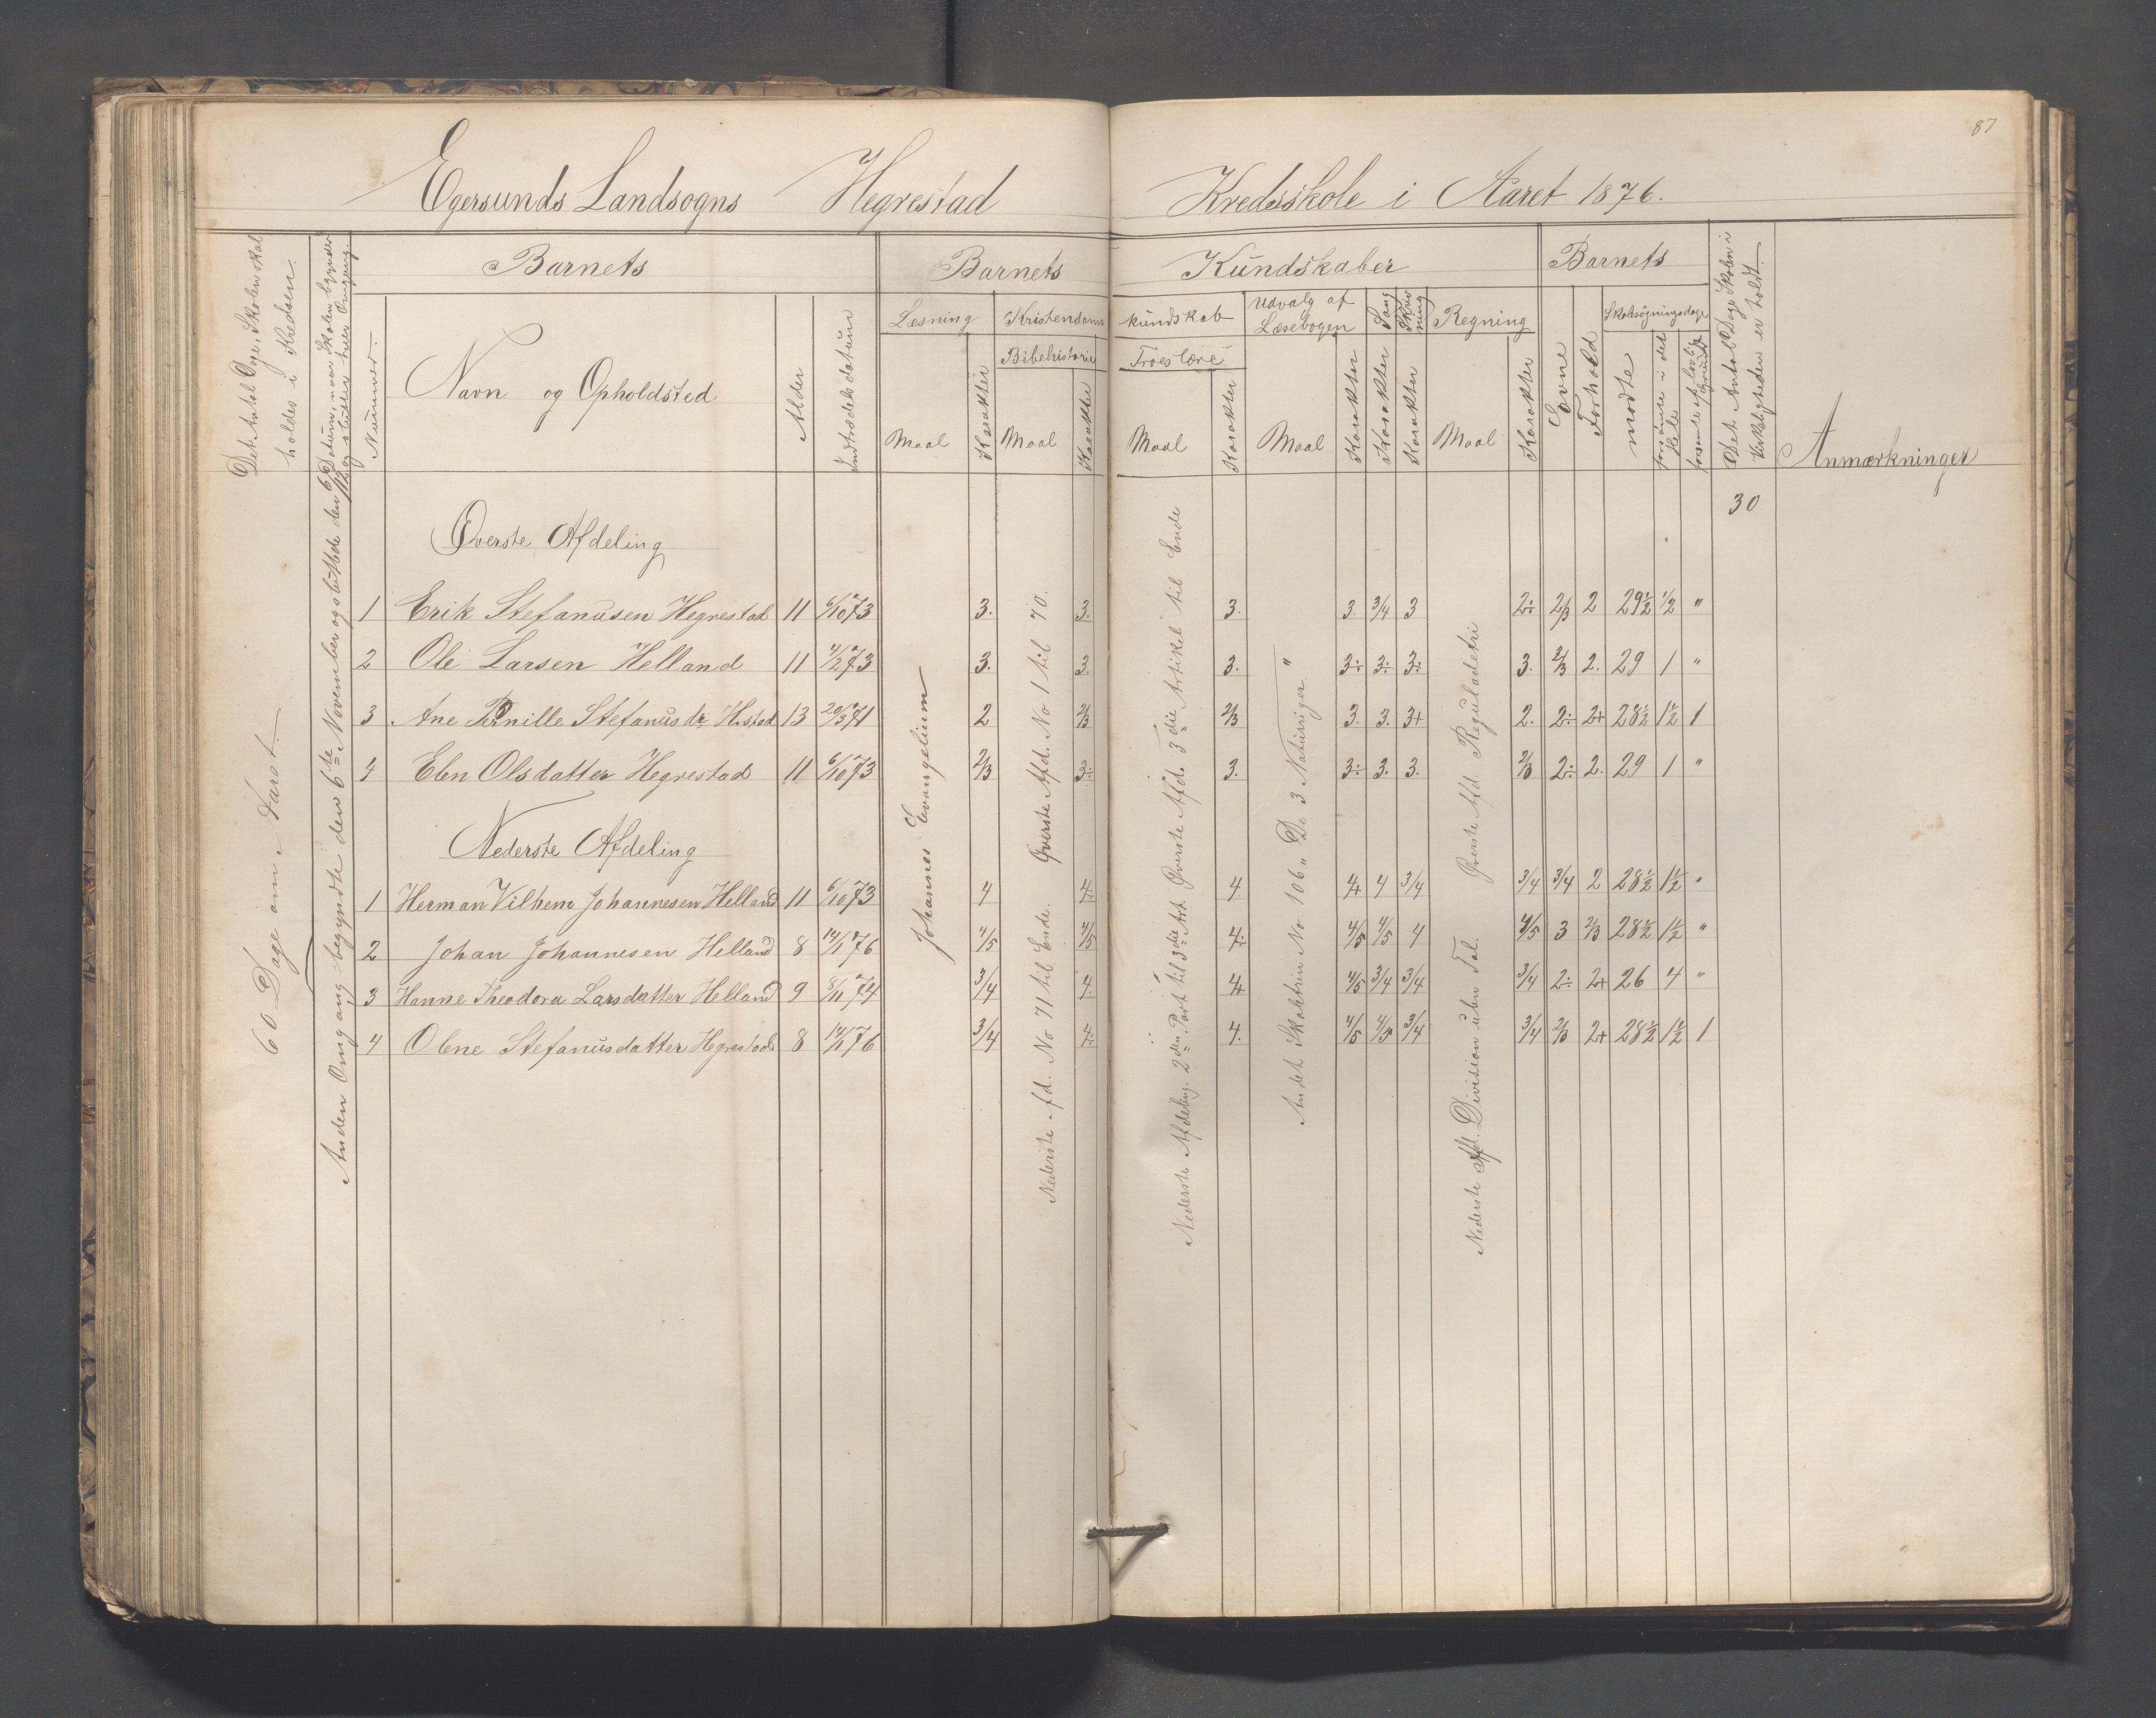 87
Egersunds Landsogns Hegrestad Kredsskole i Aaret 1876.
Det Antal Dage, Skolen skal holdes i Kredsen.
Datum, naar Skolen begynder og slutter hver Omgang.
Nummer.
Barnets
Navn og Opholdsted
Alder
Indtrædelsdatum
Barnets Kundskaber
Læsning
Maal
Karakter
Kristendoms kundskab
Bibelhistorie
Maal
Karakter
Troeslære
Maal
Karakter
Udvalg af Læsebogen
Maal
Karakter
Sang
Karakter
Skrivning
Karakter
Regning
Maal
Karakter
Barnets
Evne
Forhold
Skolesøgningsdage
mødte
forsømte i det Hele
forsømte af lovlig Grund
Det Antal Dage Skolen i Virkeligheden er holdt.
Anmærkninger
30
60 Dage om Aaret
Anden Omgang begyndte den 6te November og sluttede den
Johannes Evangelium
Øverste Afd. No 1 til 70.
Nederste Afd. No 71 til Ende.
Øverste Afd. 3die Artikel til Ende
Nederste Afdeling. 2den Part til 3die Art.
Andet No 106 „ De 3 „
Øverste Afd. Reguladetri
Nederste Afd. Division uben Tal.
Øverste Afdeling
1 Erik Stefanusen Hegrestad 11 6/10 73 3. 3. 3. 3. 3/4 3 2÷ 2/3 2 29½ ½ "
2 Ole Larsen Helland 11 4/2 73 3. 3. 3. 3÷ 3÷ 3÷ 3. 2/3 2. 29 1 "
3 Ane Pernille Stefanusdr H.stad 13 20/3 71 2 2/3 2/3 3. 3. 3+ 2. 2÷ 2+ 28½ 1½ 1
4 Elen Olsdatter Hegrestad 11 6/10 73 2/3 3÷ 3. 3÷ 3. 3. 2/3 2÷ 2. 29 1 "
Nederste Afdeling
1 Herman Vilhem Johannesen Helland 11 6/10 73 4 4÷ 4. 4+ 4 3/4 3/4 3/4 2 28½ 1½ "
2 Johan Johannesen Helland 8 14/1 76 4/5 4/5 4÷ 4/5 4/5 4 4/5 3 2/3 28½ 1½ "
3 Hanne Theodora Larsdatter Helland 9 8/11 74 3/4 4. 4+ 4/5 3/4 3/4 3/4 2÷ 2+ 26 4 "
4 Olene Stefanusdatter Hegrestad 8 14/1 76 3/4 4÷ 4. 4/5 4/5 3/4 3/4 2/3 2+ 28½ 1½ 1